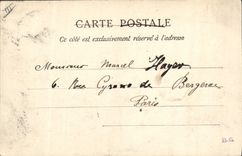 CARTE POSTALE
Ce côté est exclusivement réservé à l'adresse
Monsieur Marcel Hayer
6. Rue Cyrano de Bergerac
Paris